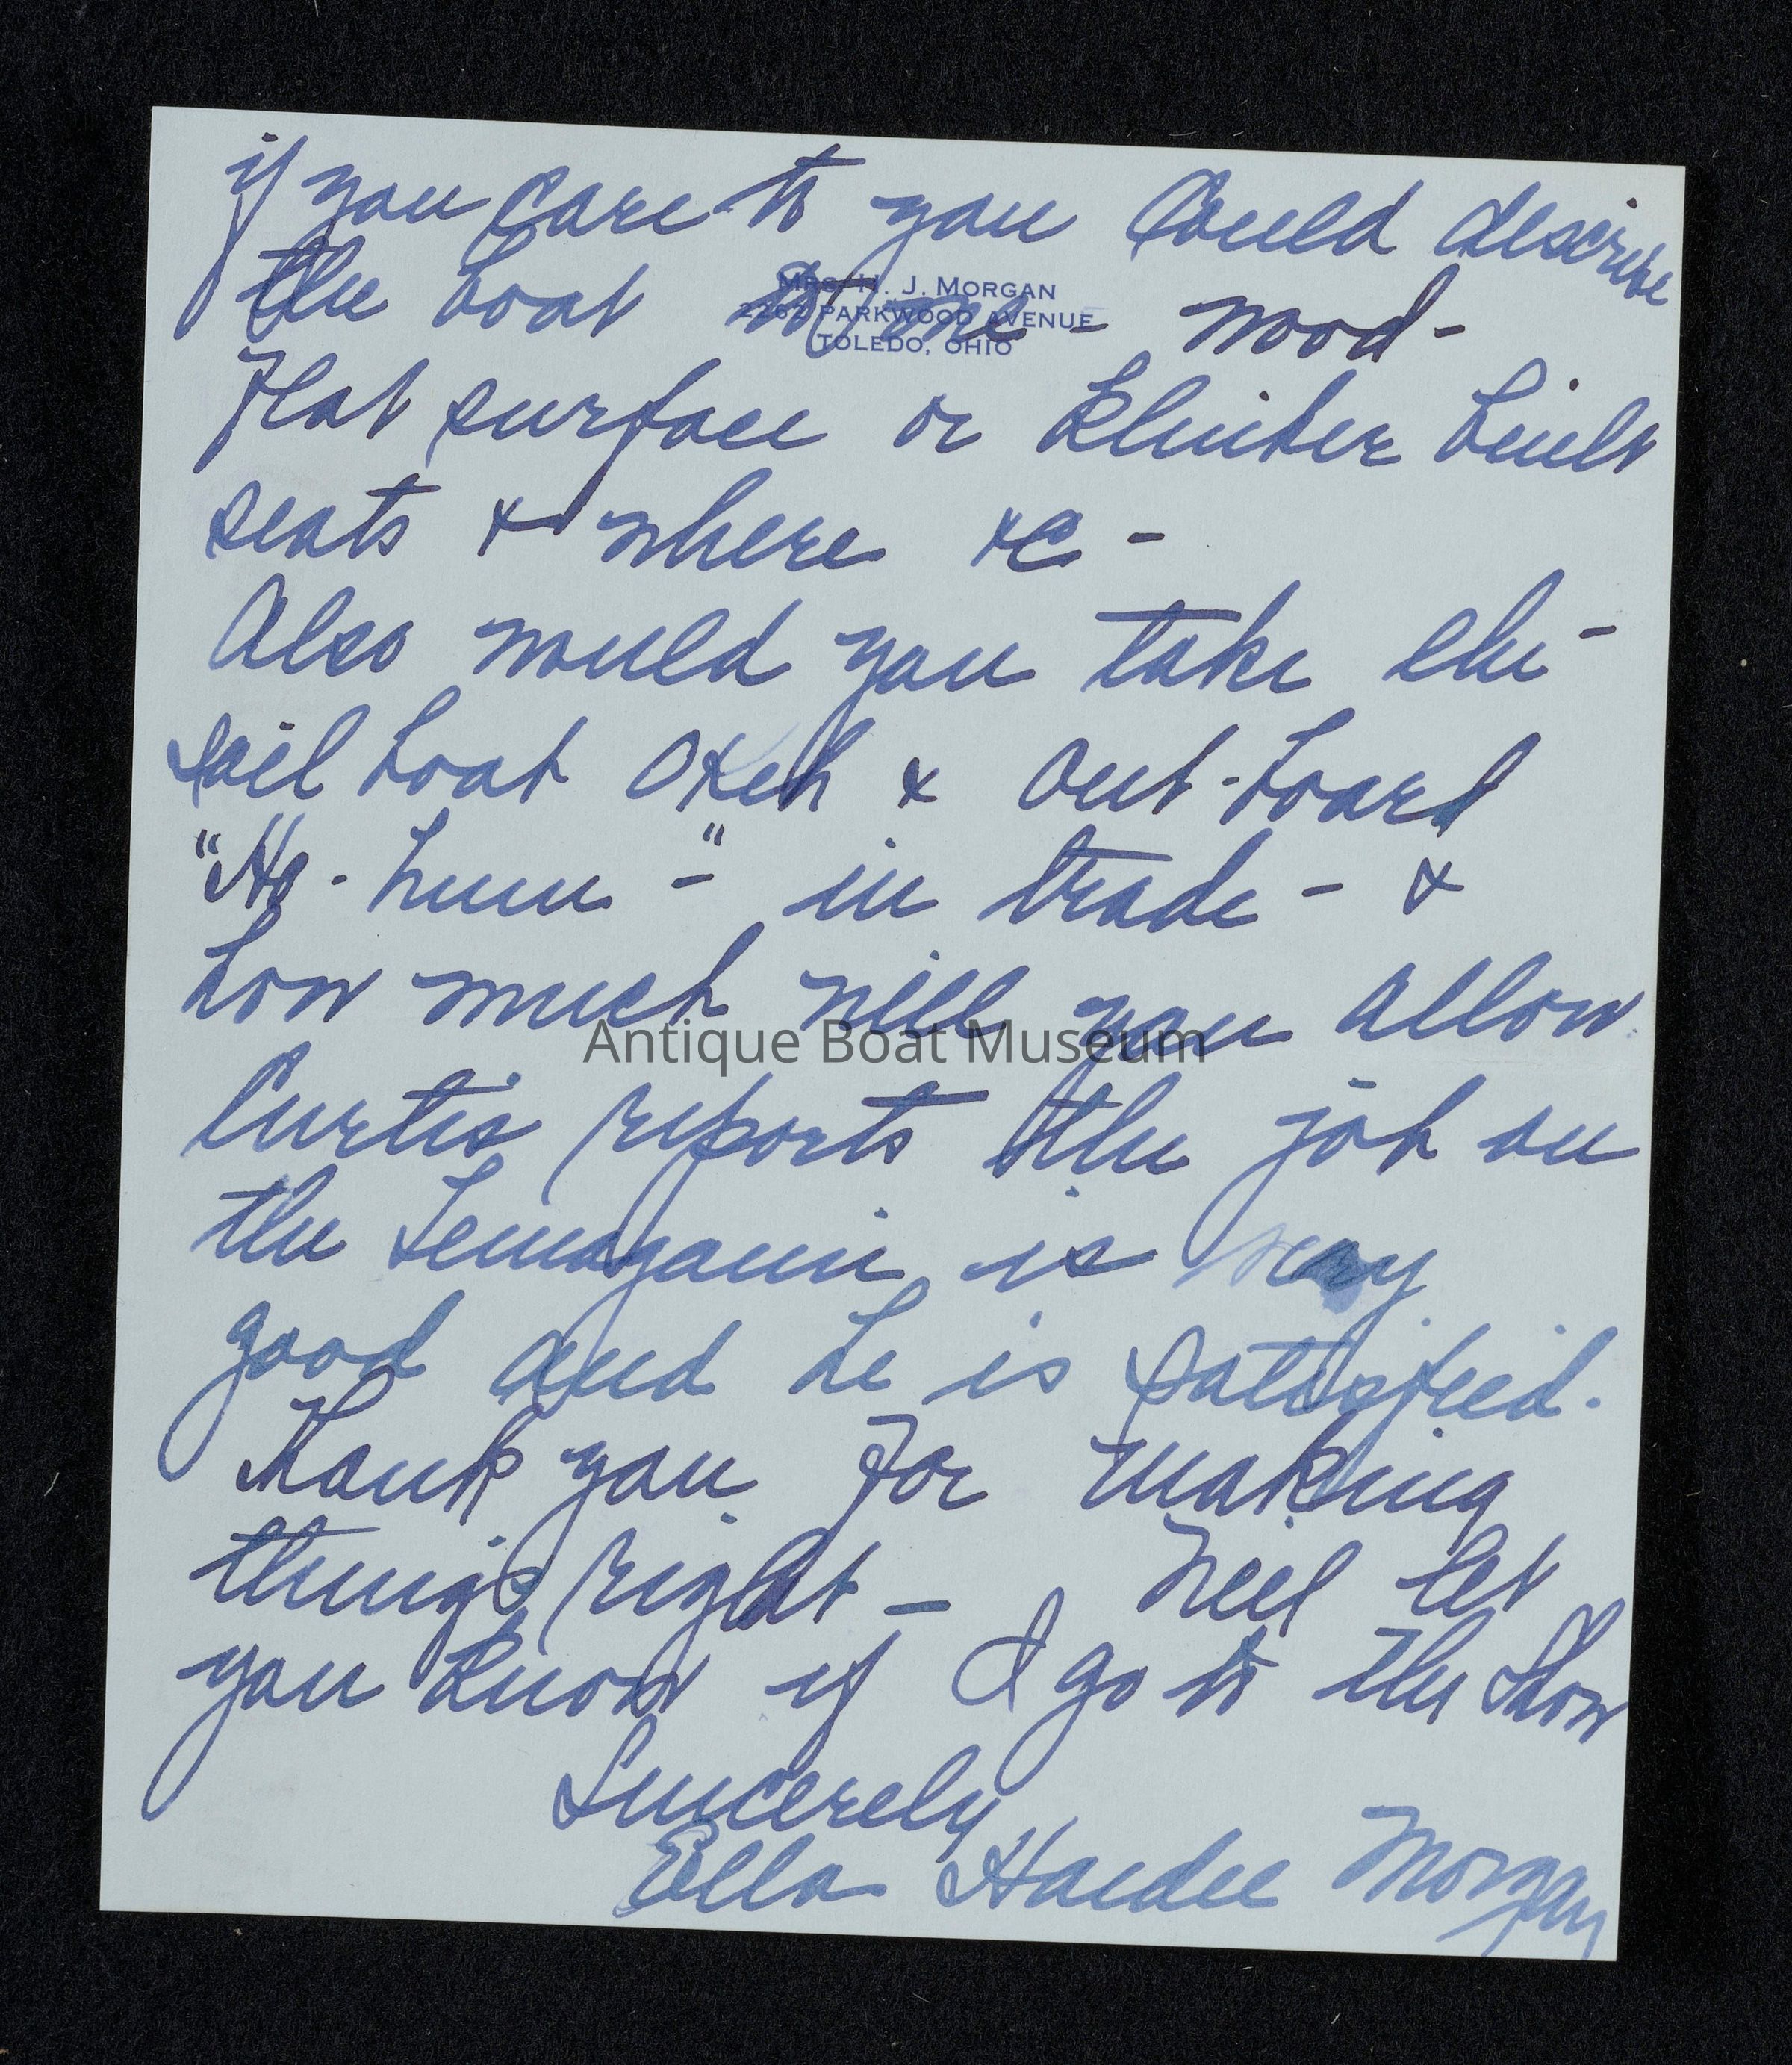 if you care to you could describe
MRS. H. J. MORGAN
2262 PARKWOOD AVENUE
TOLEDO, OHIO
the boat to me - wood -
Flat surface or klinker built
seats & where &c -
Also would you take the -
sail boat Okeh & out-board
"Ho-hum -" in trade - &
how much will you allow
Antique Boat Museum
Curtis reports the job on
the Temagami is very
good and he is satisfied.
Thank you for making
things right - Will let
you know if I go to the Show
Sincerely
Ella Morgan